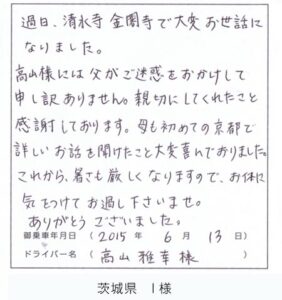 過日、清水寺 金閣寺で大変お世話に
なりました。
高山様には父がご迷惑をおかけして
申し訳ありません。親切にしてくれたこと
感謝しております。母も初めての京都で
詳しいお話を聞けたこと大変喜んでおりました。
これから、暑さも厳しくなりますので、お体に
気をつけてお過し下さいませ。
ありがとうございました。
御乗車年月日 ( 2015 年 6 月 13 日 )
ドライバー名 ( 高山 雅幸 様 )
茨城県 I様